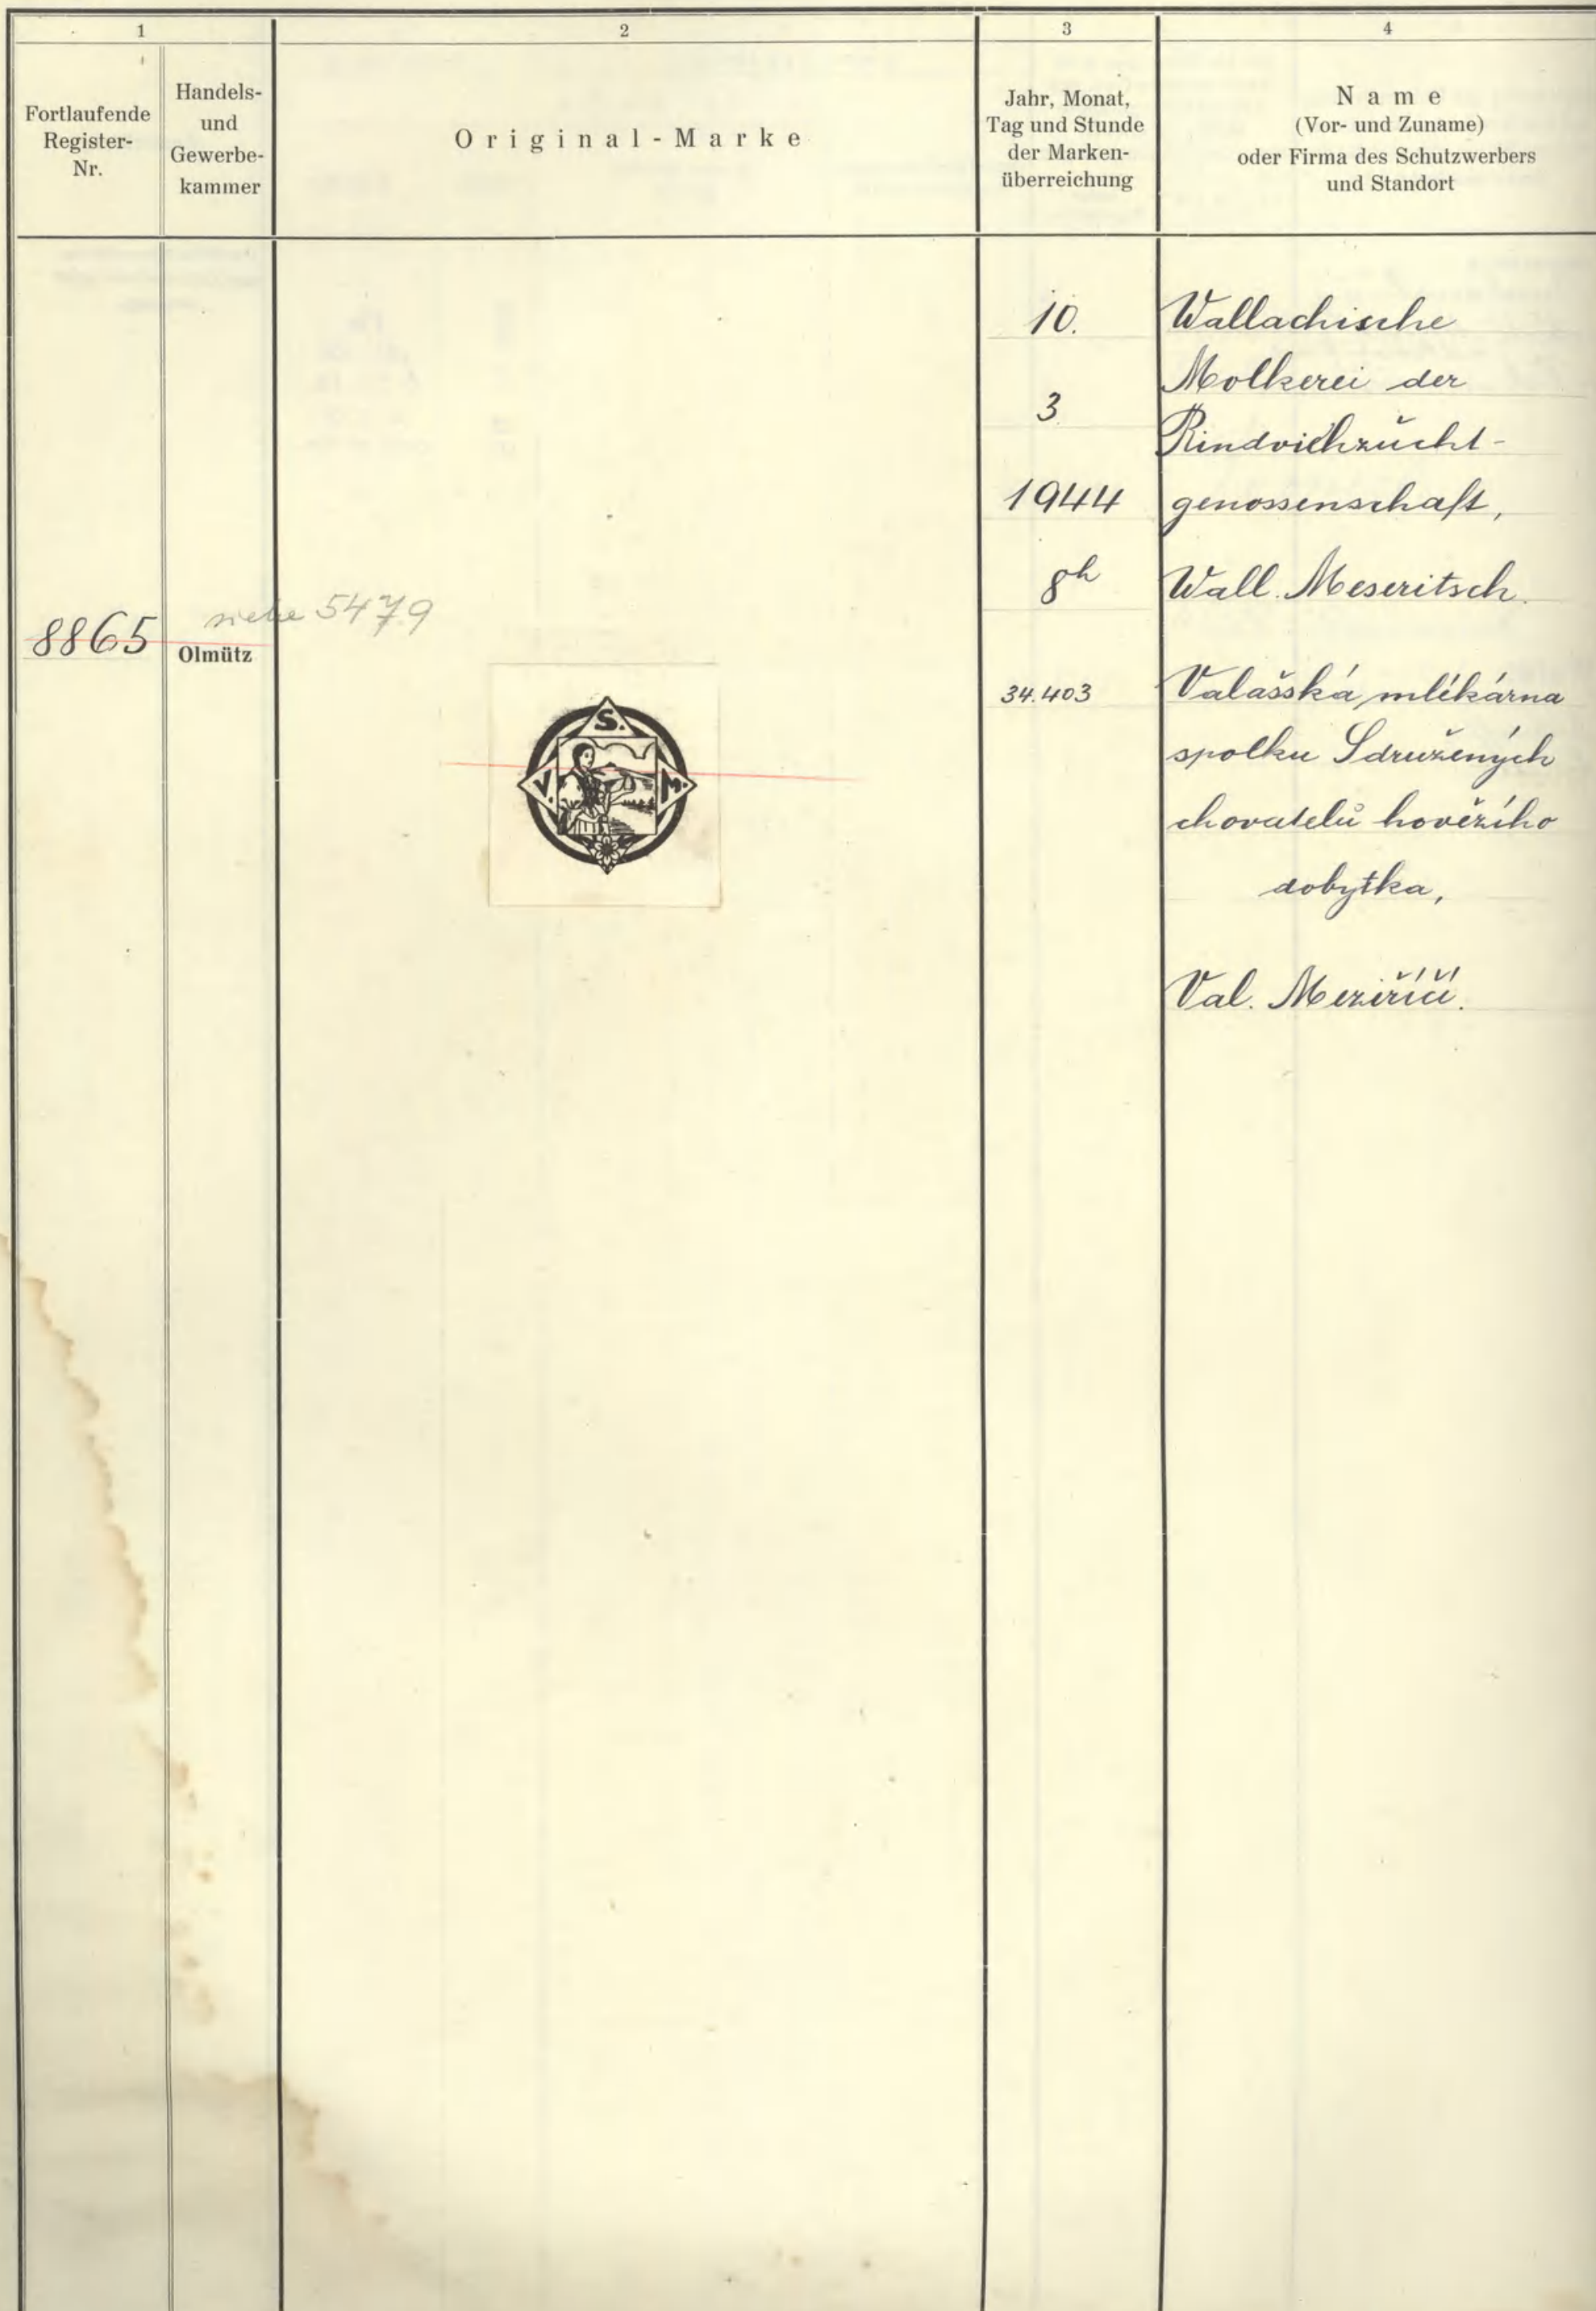 1
2
3
4
Fortlaufende
Register-
Nr.
Handels-
und
Gewerbe-
kammer
Original-Marke
Jahr, Monat,
Tag und Stunde
der Marken-
überreichung
Name
(Vor- und Zuname)
oder Firma des Schutzwerbers
und Standort
8865
siehe 5479
Olmütz
S.
V. M.
10.
3.
1944
8h
34.403
Wallachische
Molkerei der
Rindviehzucht-
genossenschaft,
Wall. Meseritsch.
Valašská mlékárna
spolku Sdružených
chovatelů hovězího
dobytka,
Val. Meziříčí.